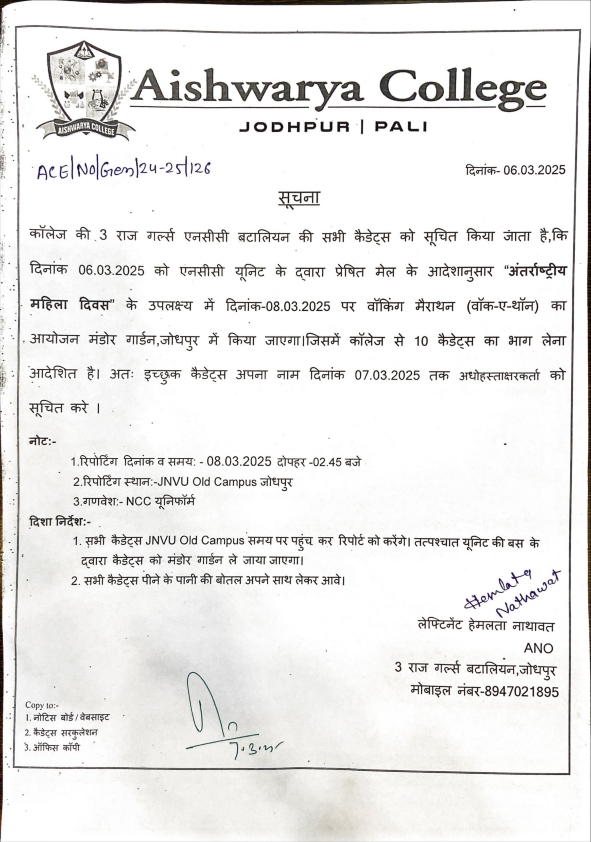 AISHWARYA COLLEGE
Aishwarya College
JODHPUR | PALI
ACE/No/Gen/24-25/126
दिनांक- 06.03.2025
सूचना
कॉलेज की 3 राज गर्ल्स एनसीसी बटालियन की सभी कैडेट्स को सूचित किया जाता है,कि
दिनांक 06.03.2025 को एनसीसी यूनिट के द्वारा प्रेषित मेल के आदेशानुसार "अंतर्राष्ट्रीय
महिला दिवस" के उपलक्ष्य में दिनांक-08.03.2025 पर वॉकिंग मैराथन (वॉक-ए-थॉन) का
आयोजन मंडोर गार्डन,जोधपुर में किया जाएगा।जिसमें कॉलेज से 10 कैडेट्स का भाग लेना
आदेशित है। अतः इच्छुक कैडेट्स अपना नाम दिनांक 07.03.2025 तक अधोहस्ताक्षरकर्ता को
सूचित करे ।
नोट:-
1.रिपोर्टिंग दिनांक व समय: - 08.03.2025 दोपहर -02.45 बजे
2.रिपोर्टिंग स्थान:-JNVU Old Campus जोधपुर
3.गणवेश:- NCC यूनिफॉर्म
दिशा निर्देश:-
1. सभी कैडेट्स JNVU Old Campus समय पर पहुंच कर रिपोर्ट को करेंगे। तत्पश्चात यूनिट की बस के
द्वारा कैडेट्स को मंडोर गार्डन ले जाया जाएगा।
2. सभी कैडेट्स पीने के पानी की बोतल अपने साथ लेकर आवे।
Hemlata
Nathawat
लेफ्टिनेंट हेमलता नाथावत
ANO
3 राज गर्ल्स बटालियन,जोधपुर
मोबाइल नंबर-8947021895
Copy to:-
1. नोटिस बोर्ड / वेबसाइट
2. कैडेट्स सरकुलेशन
3. ऑफिस कॉपी